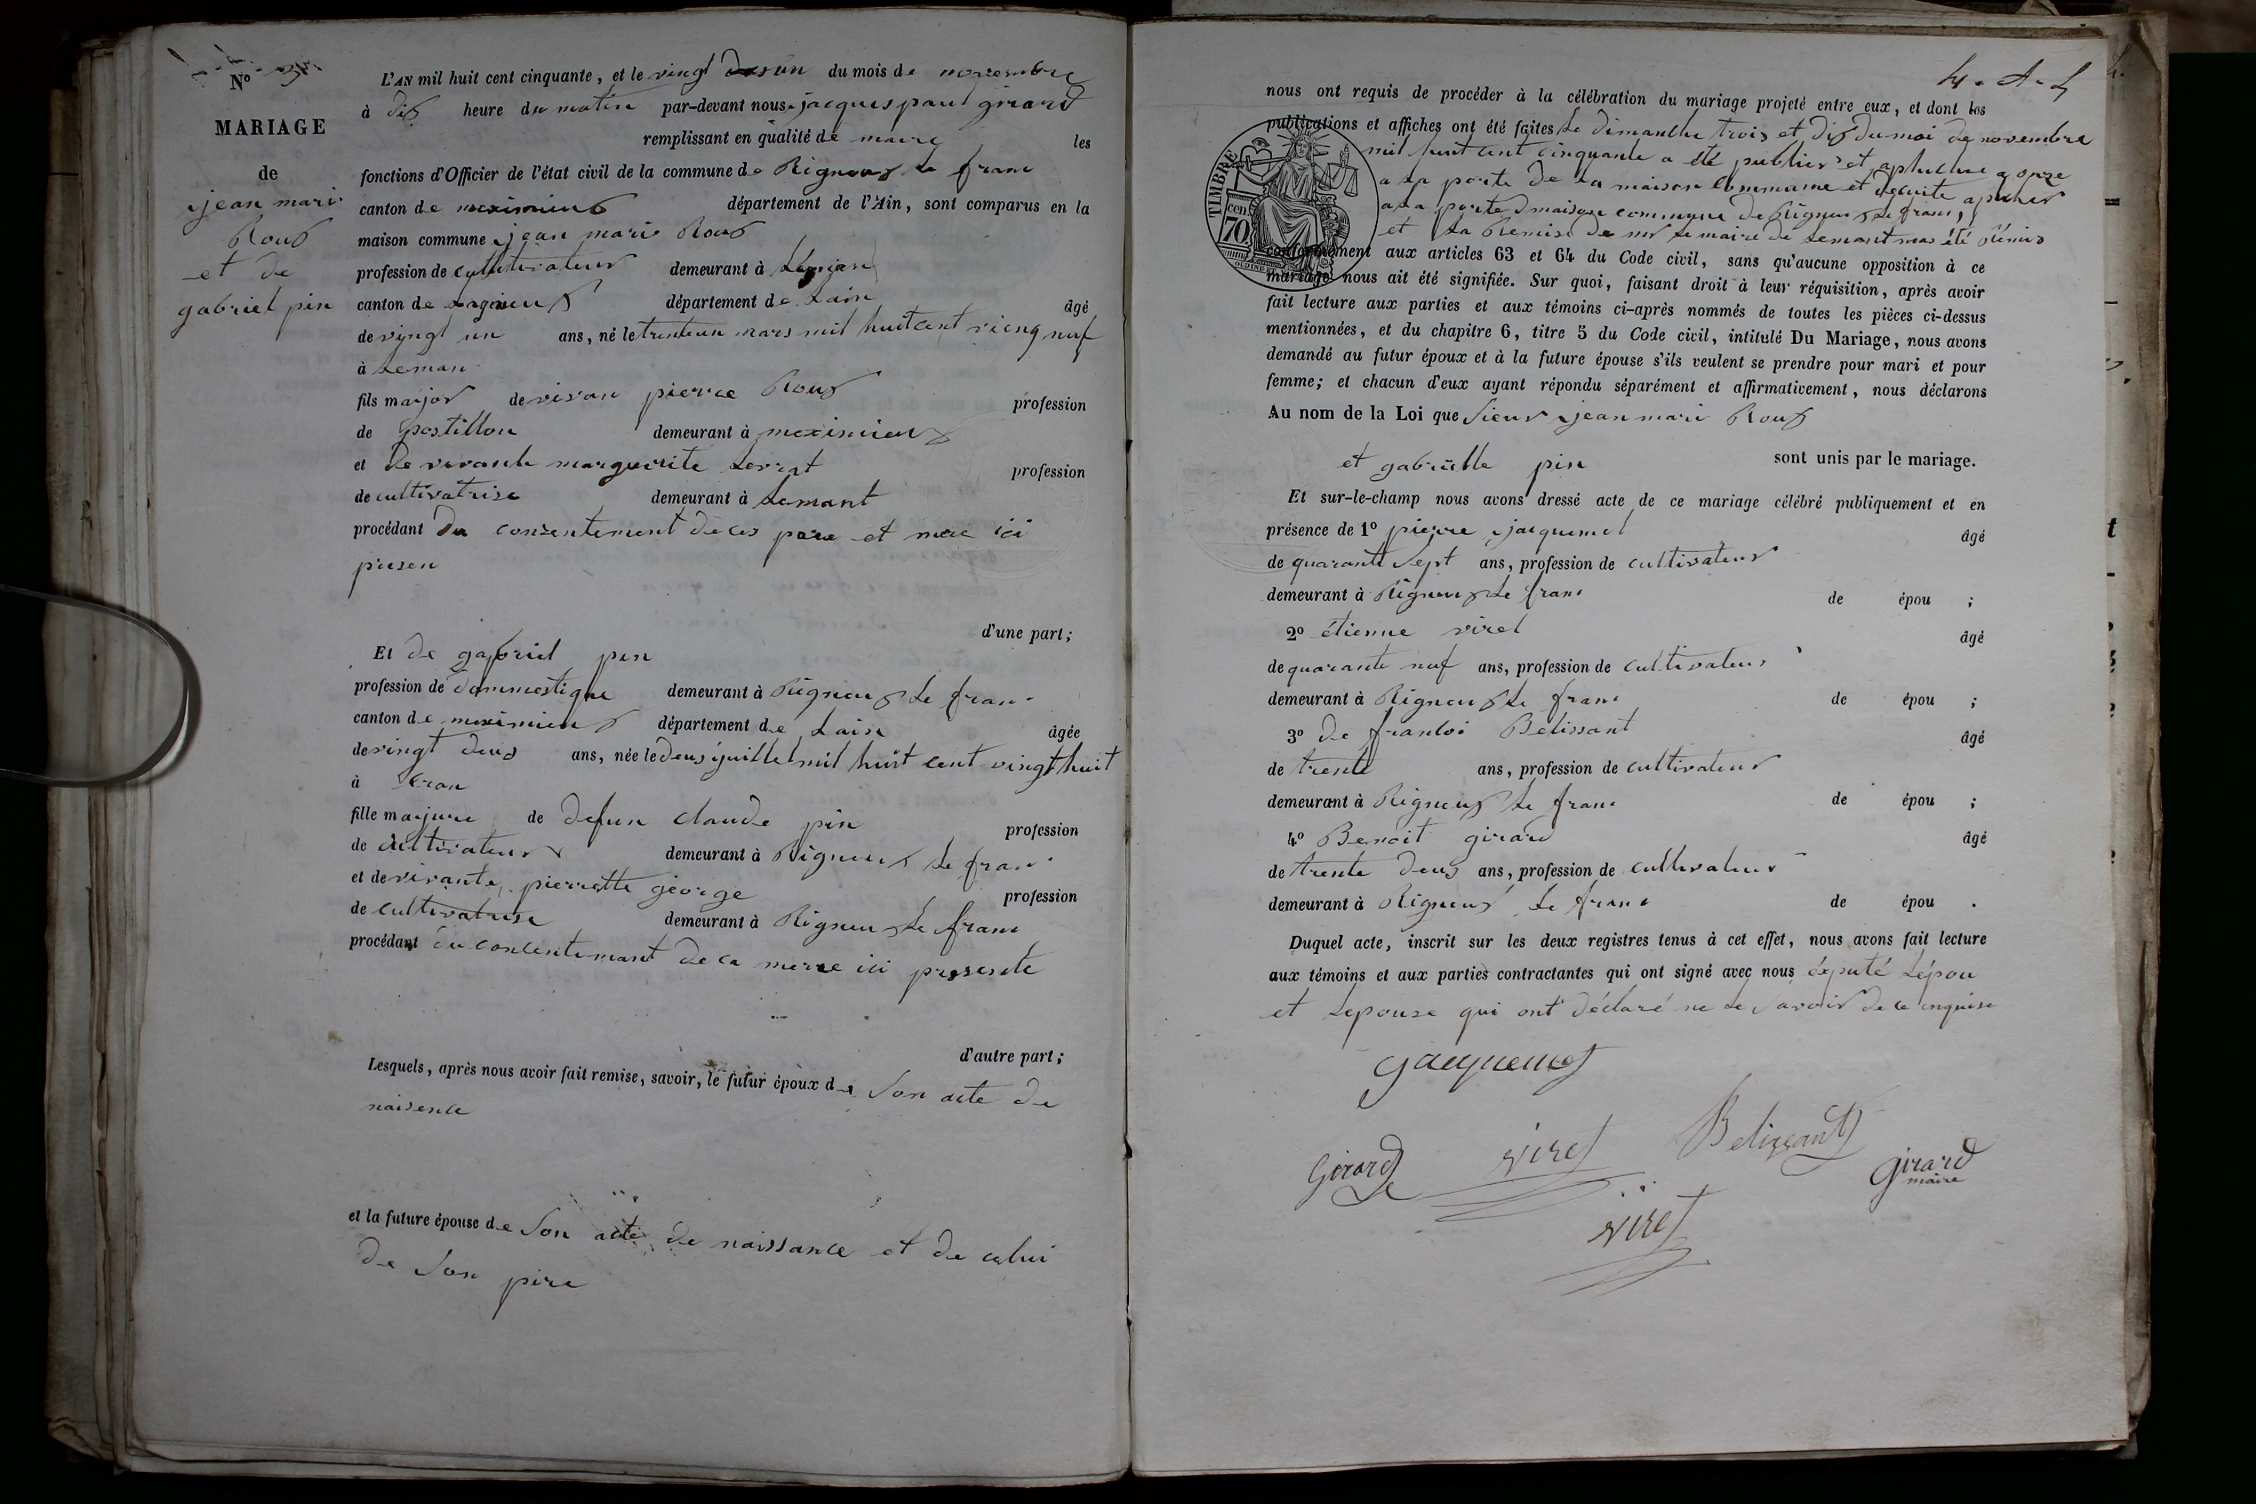 N°
MARIAGE
de
jean mari
Roux
et de
gabriel pin
L'AN mil huit cent cinquante, et le vingt un du mois de novembre
à dix heure du matin par-devant nous jacques paul girard
remplissant en qualité de maire les
fonctions d'Officier de l'état civil de la commune de Rigneux le franc
canton de meximieux département de l'Ain, sont comparus en la
maison commune jean marie Roux
profession de cultivateur demeurant à
canton de lagnieux département de Lain âgé
de vingt un ans, né le trenteun mars mil huit cent vieng neuf
à Leman
fils major de vivan pierre Roux profession
de postillon demeurant à meximieux
et de vivante marguerite Lerrat profession
de cultivatrise demeurant à Lemant
procédant du consentement de ces pere et mere ici
presen
d'une part;
Et de gabriel pin
profession de dommestique demeurant à Rigneux Le franc
canton de meximieux département de Lain âgée
de vingt deux ans, née le deux juillet mil huit cent vingt huit
à Cran
fille majure de defun claude pin profession
de cultivateur demeurant à Rigneux Le franc
et de vivante pierrette george profession
de cultivatrise demeurant à Rigneux Le franc
procédant du concentemant de ca merre ici presente
d'autre part;
Lesquels, après nous avoir fait remise, savoir, le futur époux de son acte de
naisence
et la future épouse de son acte de naissance et de celui
de son pire
nous ont requis de procéder à la célébration du mariage projeté entre eux, et dont les
publications et affiches ont été faites Le dimanche trois et dix du moi de novembre
mil huit cent cinquante a été publier et a onze
a la porte de la maison commune et de suite
a la porte maison commune de Rigneux Le franc,
et la Remise de mr le maire de Lemant mas été Rémis
TIMBRE
70 cen.
conformément aux articles 63 et 64 du Code civil, sans qu'aucune opposition à ce
mariage nous ait été signifiée. Sur quoi, faisant droit à leur réquisition, après avoir
fait lecture aux parties et aux témoins ci-après nommés de toutes les pièces ci-dessus
mentionnées, et du chapitre 6, titre 5 du Code civil, intitulé Du Mariage, nous avons
demandé au futur époux et à la future épouse s'ils veulent se prendre pour mari et pour
femme; et chacun d'eux ayant répondu séparément et affirmativement, nous déclarons
Au nom de la Loi que sieur jean mari Roux
et gabrielle pin sont unis par le mariage.
Et sur-le-champ nous avons dressé acte de ce mariage célébré publiquement et en
présence de 1° pierre jacquemet âgé
de quarante sept ans, profession de cultivateur
demeurant à Rigneux Le franc de épou ;
2° étienne viret âgé
de quarante nuf ans, profession de cultivateur
demeurant à Rigneux Le franc de épou ;
3° de francoi Belissant âgé
de trente ans, profession de cultivateur
demeurant à Rigneux Le franc de épou ;
4° Benoit girard âgé
de trente deux ans, profession de cultivateur
demeurant à Rigneux Le franc de épou .
Duquel acte, inscrit sur les deux registres tenus à cet effet, nous avons fait lecture
aux témoins et aux parties contractantes qui ont signé avec nous éxpté Lépou
et Lepouse qui ont déclaré ne Le savoir de ce enquise
Jacquemet
Girard
viret
Belissant
girard
maire
viret